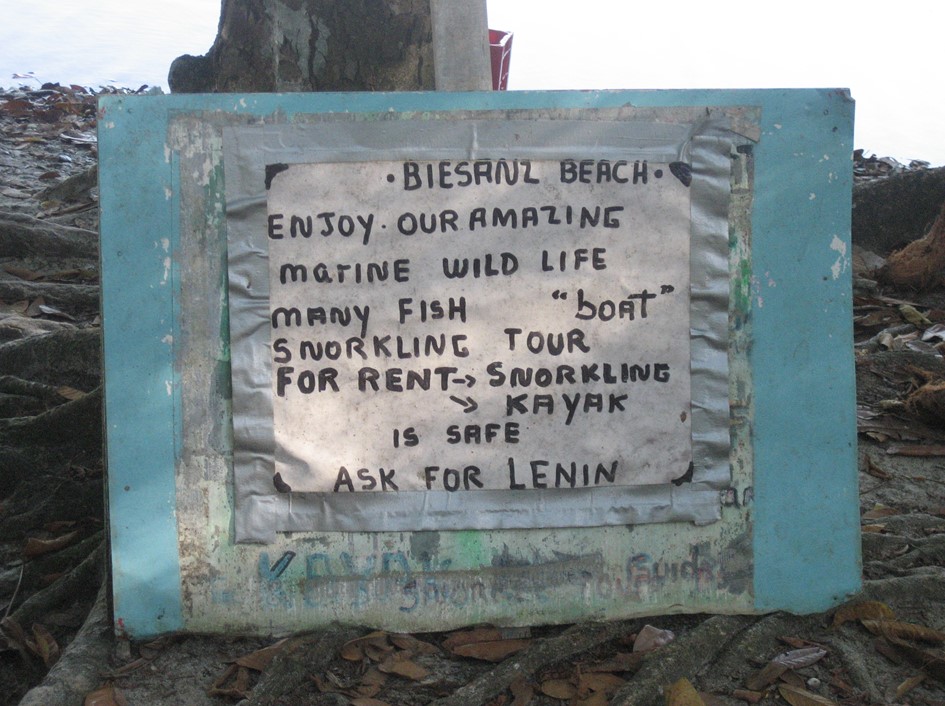 • BIESANZ BEACH •
ENJOY. OUR AMAZING
MARINE WILD LIFE
MANY FISH "boAT"
SNORKLING TOUR
FOR RENT -> SNORKLING
-> KAYAK
IS SAFE
ASK FOR LENIN
KAYAK
TOUR GUIDE